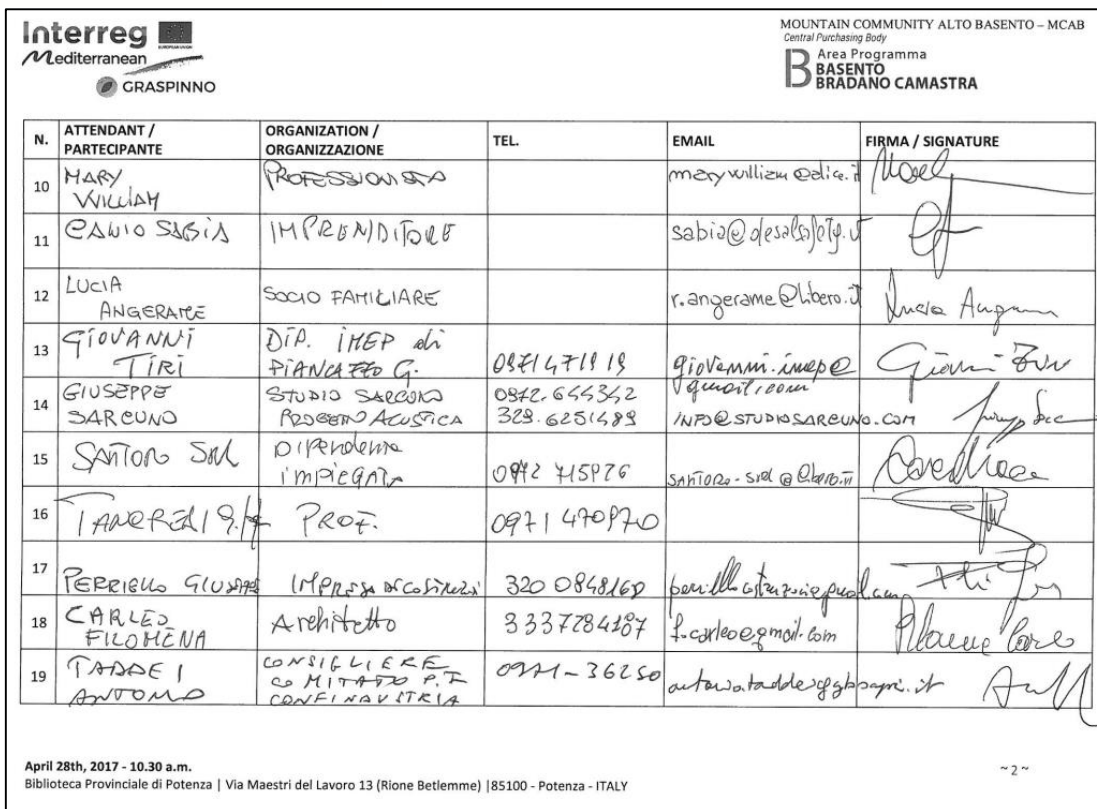 Interreg
EUROPEAN UNION
Mediterranean
GRASPINNO
MOUNTAIN COMMUNITY ALTO BASENTO – MCAB
Central Purchasing Body
Area Programma
B BASENTO
BRADANO CAMASTRA
N. ATTENDANT / PARTECIPANTE ORGANIZATION / ORGANIZZAZIONE TEL. EMAIL FIRMA / SIGNATURE
10 MARY WILLIAM PROFESSIONISTA mary william@alice.it
11 CANIO SABIA IMPRENDITORE
12 LUCIA ANGERAME SOCIO FAMILIARE r.angerame@libero.it Lucia
13 GIOVANNI TIRI DIP. IMEP di 0971471919 giovanni.imep@gmail.com
14 GIUSEPPE SARCUNO STUDIO SARCUNO PROGETTO ACUSTICA 0972.644342 329.6251489 INFO@STUDIOSARCUNO.COM
15 SANTORO SRL Dipendente impiegata 0972 715926
16 TANCREDI PROF. 0971 470970
17 PERRIELLO GIUSEPPE IMPRESA DI COSTRUZIONI 320 0848160
18 CARLEO FILOMENA Architetto 3337284187 f.carleo@gmail.com
19 TADDEI ANTONIO CONSIGLIERE COMITATO P.I CONFINDUSTRIA 0971-36250
April 28th, 2017 - 10.30 a.m.
Biblioteca Provinciale di Potenza | Via Maestri del Lavoro 13 (Rione Betlemme) |85100 - Potenza - ITALY
~ 2 ~